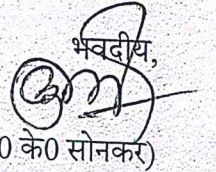 भवदीय,
0 के0 सोनकर)